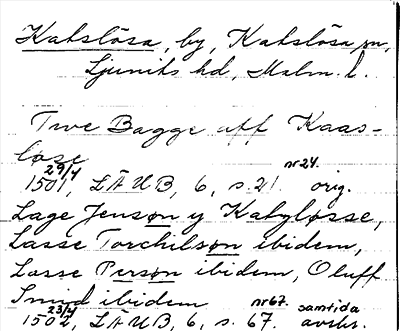 Katslösa, by, Katslösa sn,
Ljunits hd, Malm. l.
Twe Bagge aff Kaas-
løse
29/4 1501, LÄUB, 6, s. 21. nr 24. orig.
Lage Jensøn y Katzløsse,
Lasse Torchilsøn ibidem,
Lasse Persøn ibidem, Oluff
Smid ibidem
23/4 1502, LÄUB, 6, s. 67. nr 67. samtida avskr.